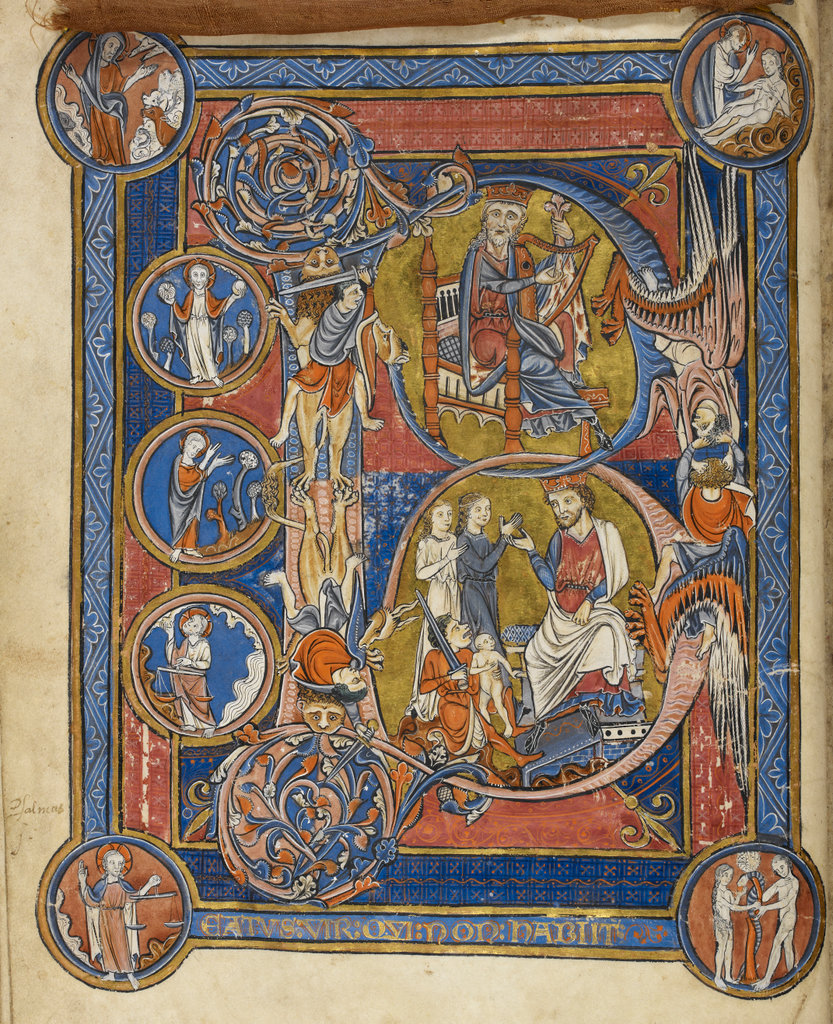 B
Psalmus
EATVS:VIR:QVI:NON:HABIIT